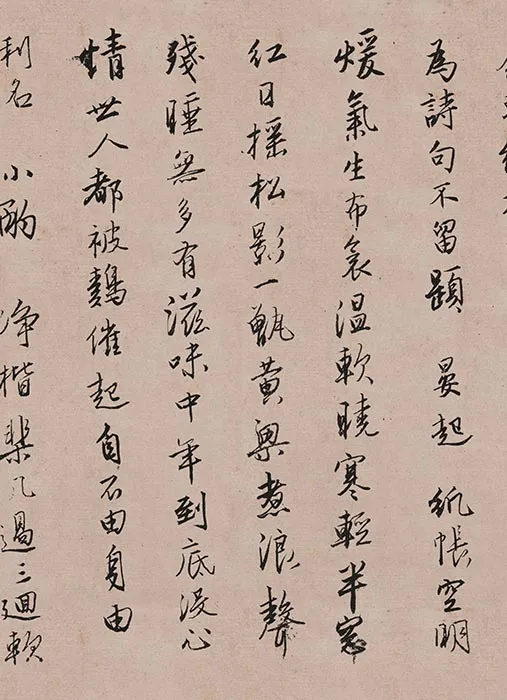 為詩句不留題 晏起 紙帳空明
煖氣生布衾温軟曉寒輕半窓
紅日摇松影一甑黄粱煮浪聲
殘睡無多有滋味中年到底没心
情世人都被鷄催起自不由身由
利名 小酌 浄揩棐几過三迴軟